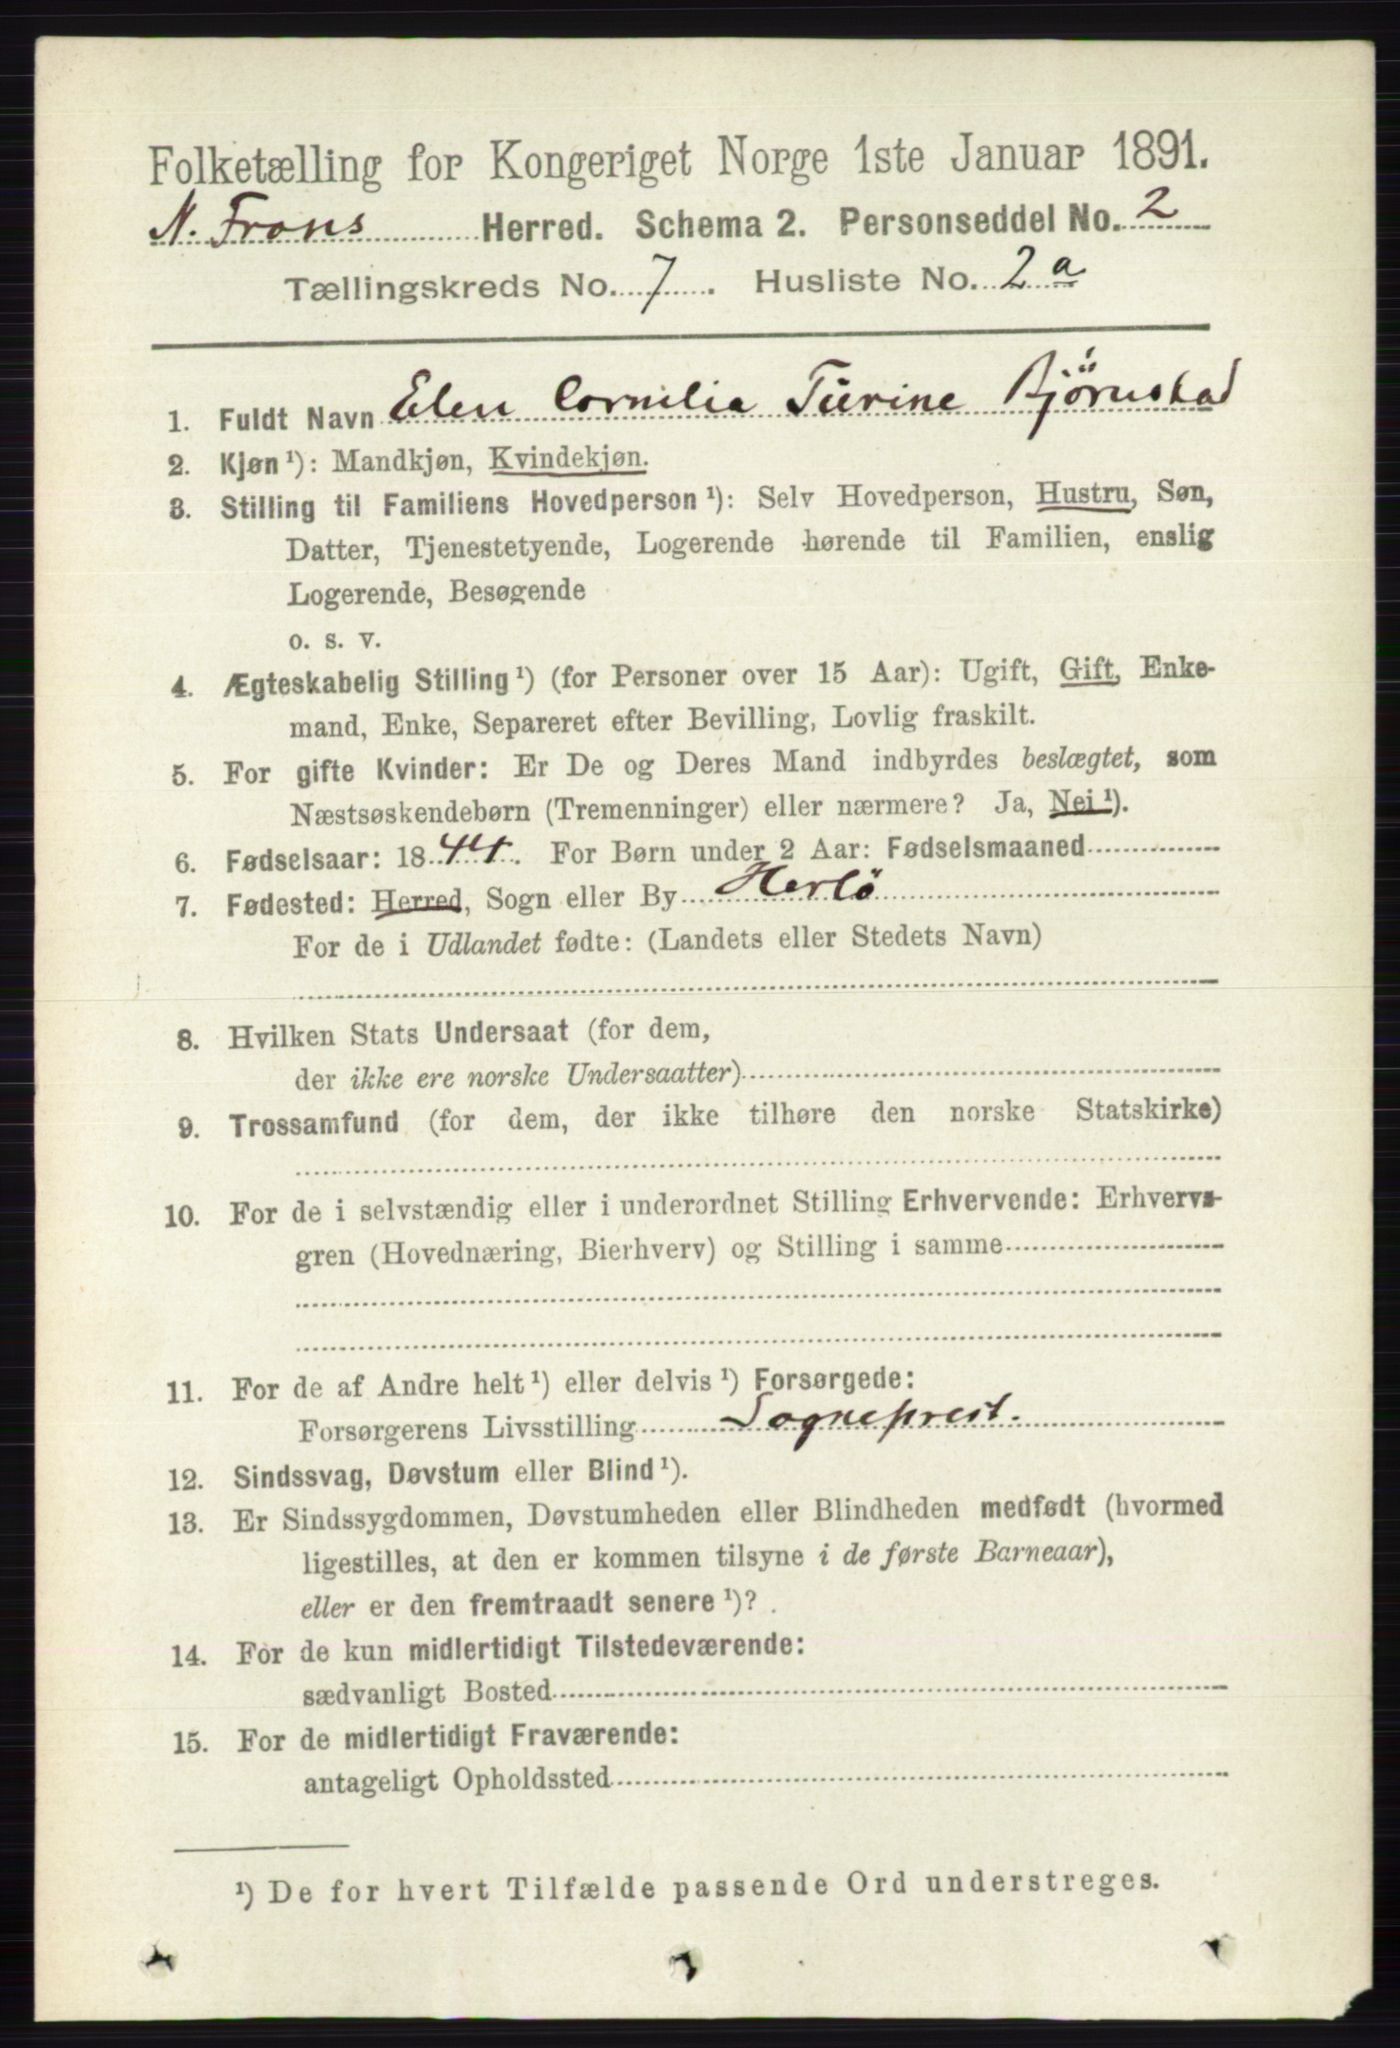 Folketælling for Kongeriget Norge 1ste Januar 1891.
N. Frons Herred. Schema 2. Personseddel No. 2
Tællingskreds No. 7. Husliste No. 2 a
1. Fuldt Navn Elen Cornilia Türine Bjørnstad
2. Kjøn ¹): Mandkjøn, Kvindekjøn.
3. Stilling til Familiens Hovedperson ¹): Selv Hovedperson, Hustru, Søn,
Datter, Tjenestetyende, Logerende hørende til Familien, enslig
Logerende, Besøgende
o. s. v.
4. Ægteskabelig Stilling ¹) (for Personer over 15 Aar): Ugift, Gift, Enke-
mand, Enke, Separeret efter Bevilling, Lovlig fraskilt.
5. For gifte Kvinder: Er De og Deres Mand indbyrdes beslægtet, som
Næstsøskendebørn (Tremenninger) eller nærmere? Ja, Nei ¹).
6. Fødselsaar: 1844. For Børn under 2 Aar: Fødselsmaaned
7. Fødested: Herred, Sogn eller By Herlö
For de i Udlandet fødte: (Landets eller Stedets Navn)
8. Hvilken Stats Undersaat (for dem,
der ikke ere norske Undersaatter)
9. Trossamfund (for dem, der ikke tilhøre den norske Statskirke)
10. For de i selvstændig eller i underordnet Stilling Erhvervende: Erhvervs-
gren (Hovednæring, Bierhverv) og Stilling i samme
11. For de af Andre helt ¹) eller delvis ¹) Forsørgede:
Forsørgerens Livsstilling Sogneprest.
12. Sindssvag, Døvstum eller Blind ¹).
13. Er Sindssygdommen, Døvstumheden eller Blindheden medfødt (hvormed
ligestilles, at den er kommen tilsyne i de første Barneaar),
eller er den fremtraadt senere ¹)?
14. For de kun midlertidigt Tilstedeværende:
sædvanligt Bosted
15. For de midlertidigt Fraværende:
antageligt Opholdssted
¹) De for hvert Tilfælde passende Ord understreges.